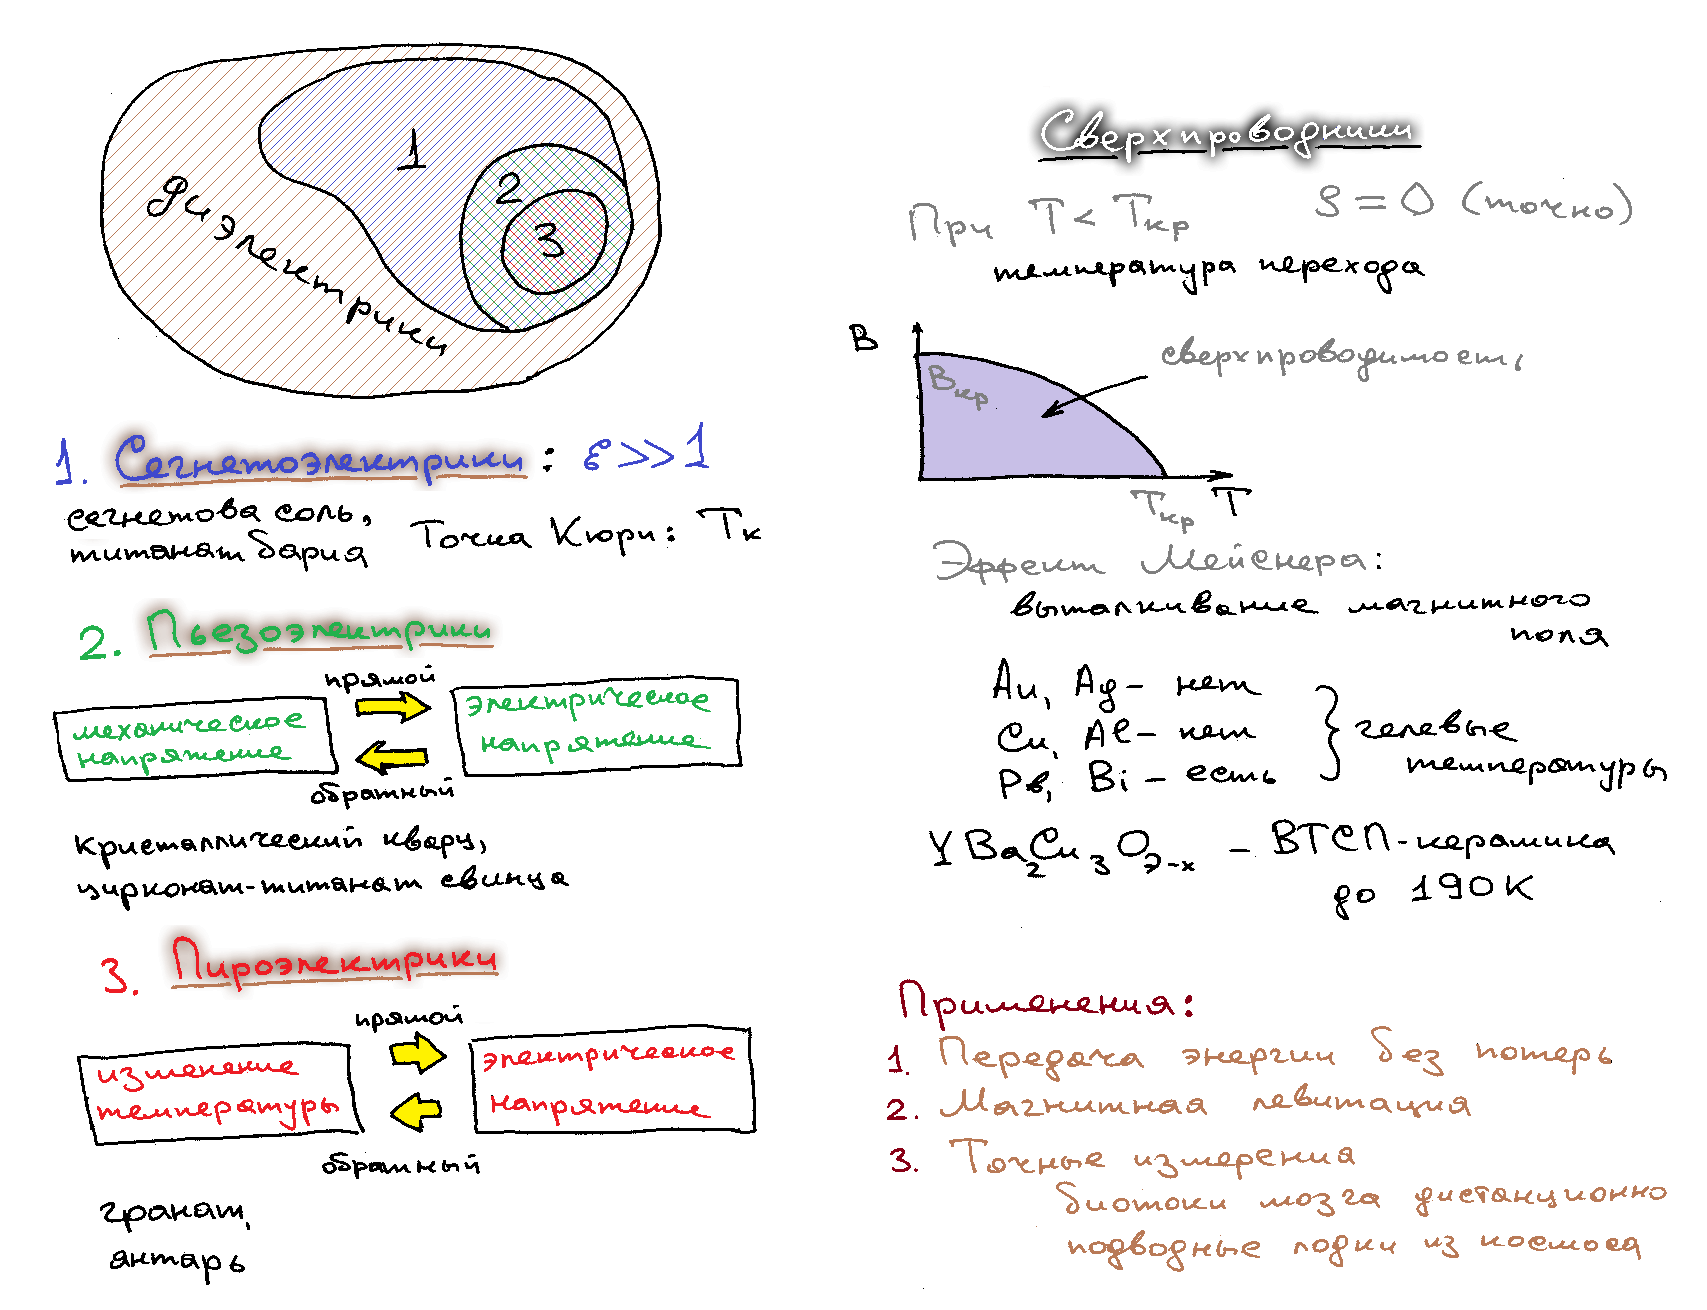 диэлектрики
1
2
3
1. Сегнетоэлектрики: ε >> 1
сегнетова соль,
титанат бария
Точка Кюри: Тк
2. Пьезоэлектрики
прямой
механическое
напряжение
электрическое
напряжение
обратный
кристаллический кварц,
цирконат-титанат свинца
3. Пироэлектрики
прямой
изменение
температуры
электрическое
напряжение
обратный
гранат,
янтарь
Сверхпроводники
При T < Tкр ρ = 0 (точно)
температура перехода
B
Bкр
сверхпроводимость
Tкр
T
Эффект Мейснера:
выталкивание магнитного
поля
Au, Ag - нет
Cu, Al - нет
Pb, Bi - есть
гелевые
температуры
YBa2Cu3O7-x - ВТСП-керамика
до 190К
Применения:
1. Передача энергии без потерь
2. Магнитная левитация
3. Точные измерения
биотоки мозга дистанционно
подводные лодки из космоса